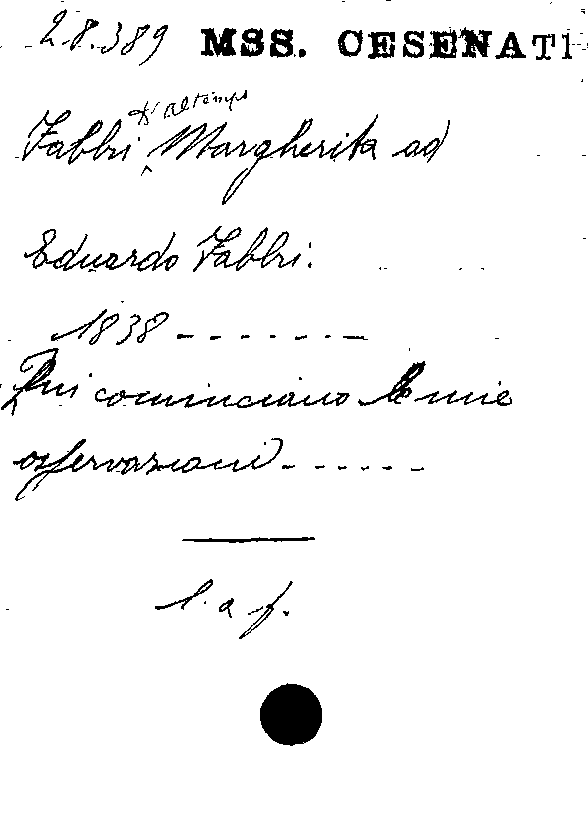 28.389 MSS. CESENATI
D'altemps
Fabbri Margherita ad
Eduardo Fabbri.
1838 - - - - - - -
Qui cominciano le mie
osservazioni - - - - - -
l. a f.